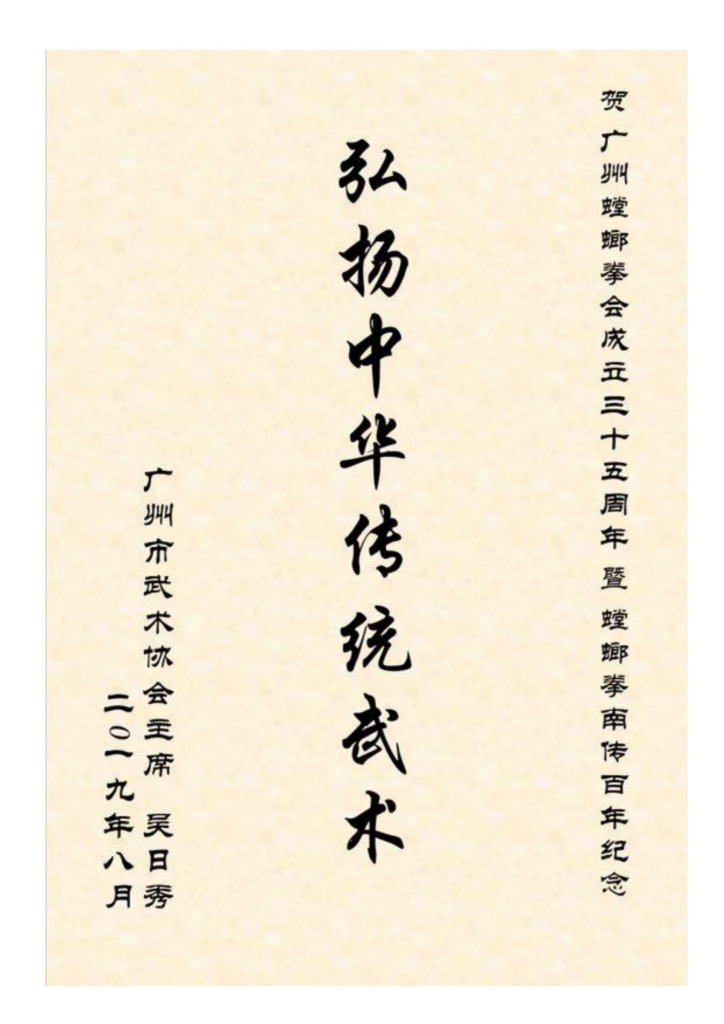 贺 广州螳螂拳会成立三十五周年 暨 螳螂拳南传百年纪念
弘扬中华传统武术
广州市武术协会主席 吴日秀
二〇一九年八月